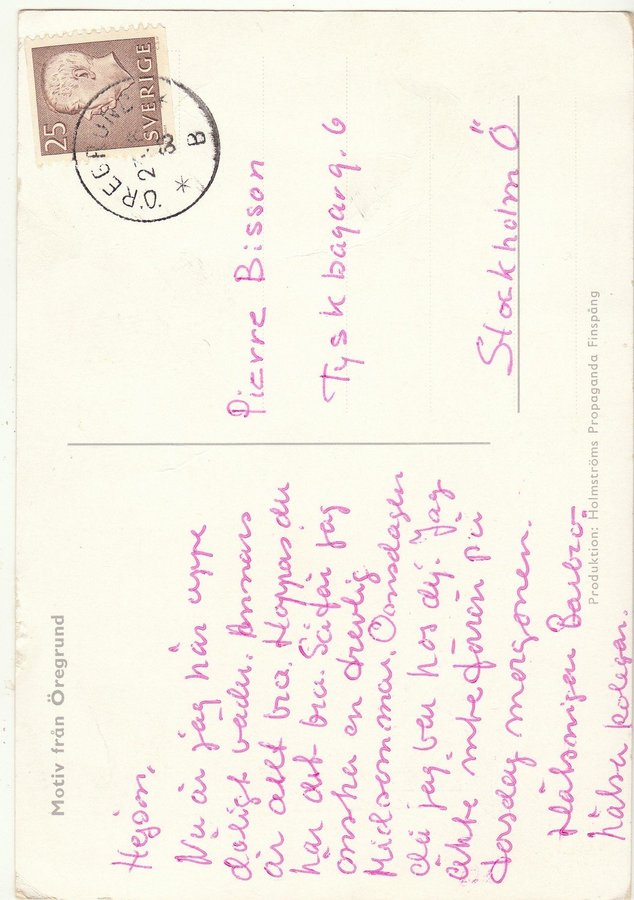 Motiv från Öregrund
Hejsan.
Nu är jag här uppe
dåligt väder. Annars
är allt bra. Hoppas du
har det bra. Så får jag
önska en trevlig
Midsommar. Onsdagen
då jag var hos dig. Jag
åkte inte förrän på
torsdag morgonen.
Hälsningar Barbro
hälsa kolegar.
25
SVERIGE
ÖREGRUND
B
Pierre Bisson
Tyskbagarg. 6
Stockholm Ö
Produktion: Holmströms Propaganda Finspång